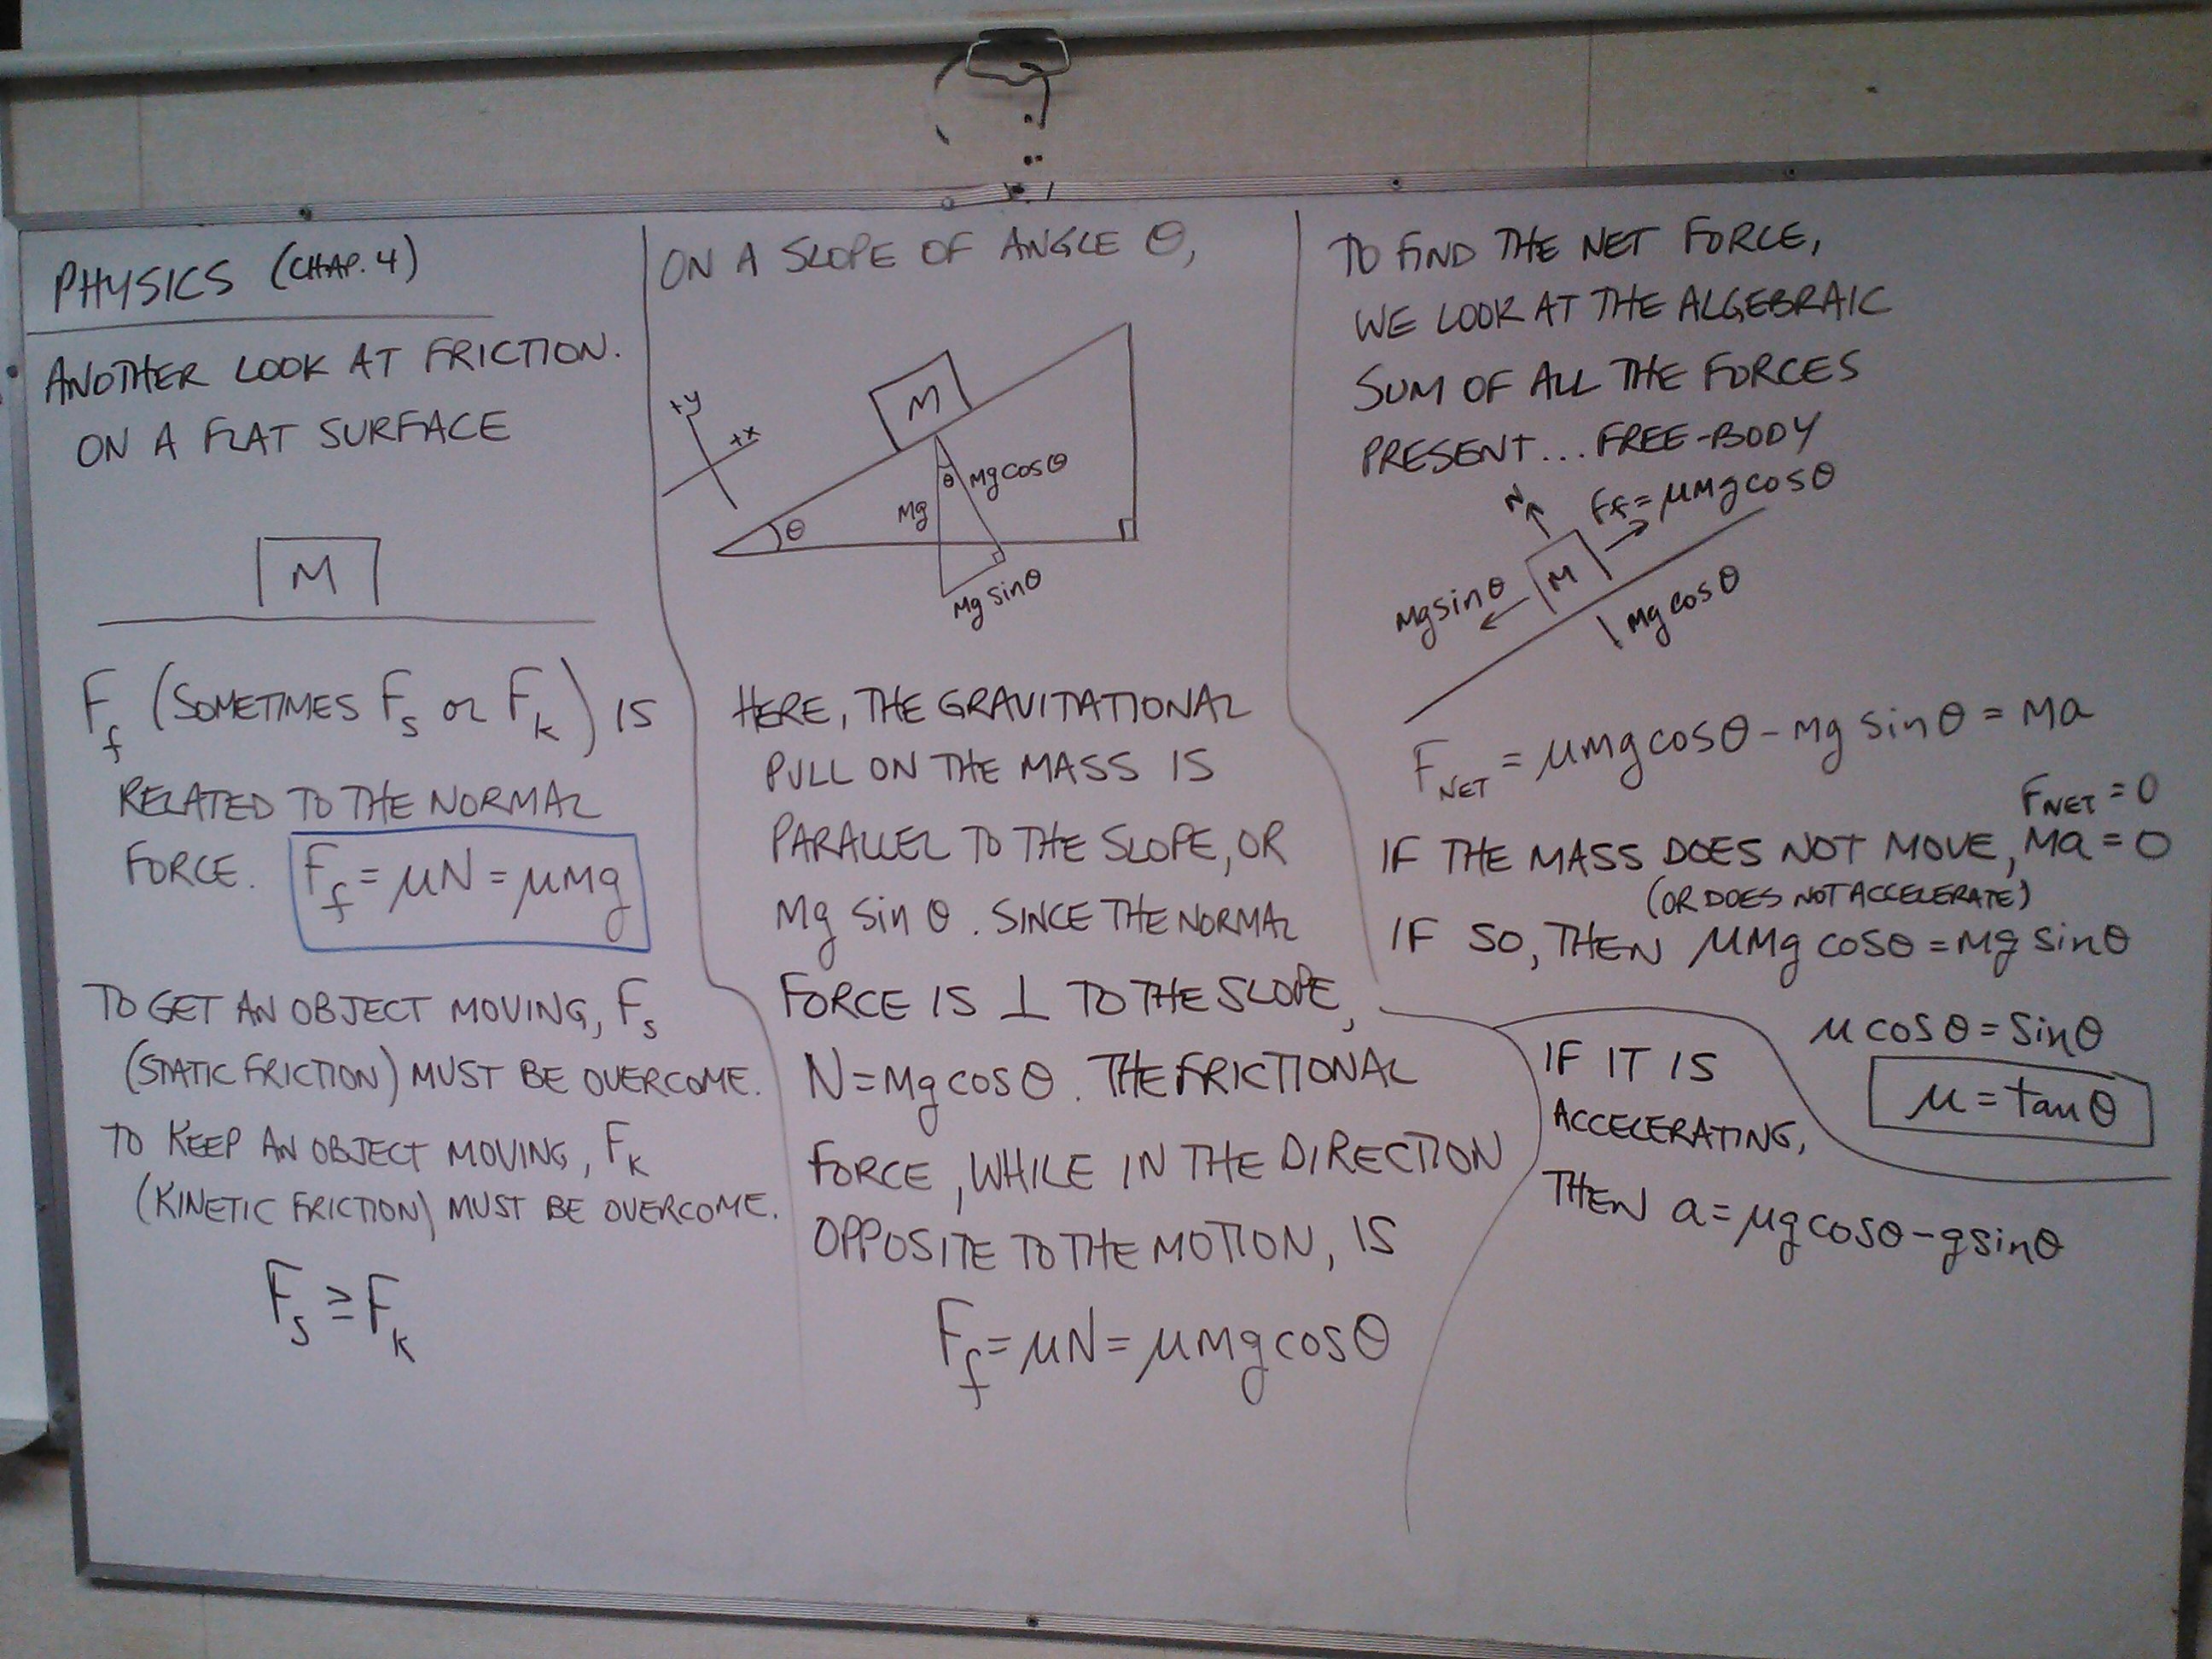 PHYSICS (CHAP. 4)
ANOTHER LOOK AT FRICTION.
ON A FLAT SURFACE
M
F_f (SOMETIMES F_s OR F_k) IS
RELATED TO THE NORMAL
FORCE. F_f = μN = μMg
TO GET AN OBJECT MOVING, F_s
(STATIC FRICTION) MUST BE OVERCOME.
TO KEEP AN OBJECT MOVING, F_k
(KINETIC FRICTION) MUST BE OVERCOME.
F_s ≥ F_k
ON A SLOPE OF ANGLE θ,
+y
+x
M
θ
Mg
θ
Mg cos θ
Mg sin θ
HERE, THE GRAVITATIONAL
PULL ON THE MASS IS
PARALLEL TO THE SLOPE, OR
Mg sin θ. SINCE THE NORMAL
FORCE IS ⊥ TO THE SLOPE,
N = Mg cos θ. THE FRICTIONAL
FORCE, WHILE IN THE DIRECTION
OPPOSITE TO THE MOTION, IS
F_f = μN = μMg cos θ
TO FIND THE NET FORCE,
WE LOOK AT THE ALGEBRAIC
SUM OF ALL THE FORCES
PRESENT... FREE-BODY
N
F_f = μMg cos θ
M
Mg sin θ
Mg cos θ
F_NET = μMg cos θ - Mg sin θ = Ma
F_NET = 0
IF THE MASS DOES NOT MOVE, Ma = 0
(OR DOES NOT ACCELERATE)
IF SO, THEN μMg cos θ = Mg sin θ
μ cos θ = sin θ
μ = tan θ
IF IT IS
ACCELERATING,
THEN a = μg cos θ - g sin θ